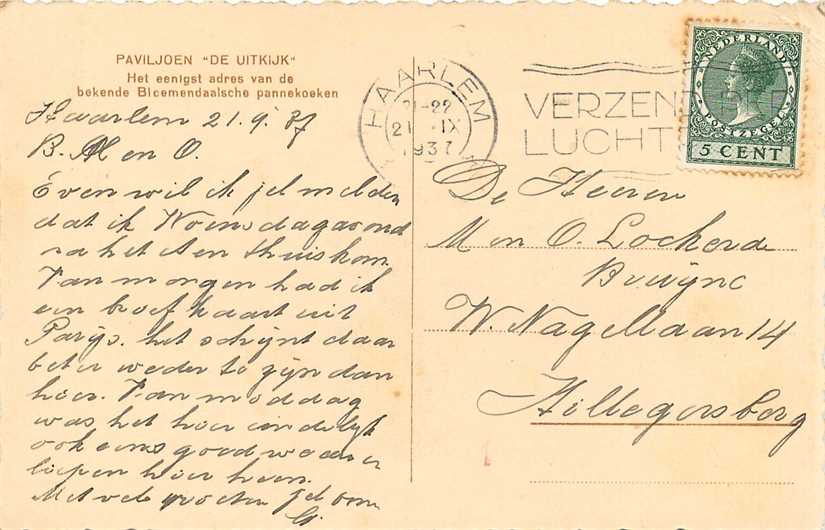 PAVILJOEN "DE UITKIJK"
Het eenigst adres van de
bekende Bloemendaalsche pannekoeken
Haarlem 21.9.37
B. M en O.
Even wil ik jel melden
dat ik Woensdagavond
na het eten thuiskom.
Van morgen had ik
een briefkaart uit
Parijs. het schijnt daar
beter weder te zijn dan
hier. Van middag
was het hier eindelijk
ook eens goed weder
liepen hier heen.
Met vele groeten jel oom
G.
HAARLEM
21-22
21 IX
1937
VERZEND PER
LUCHT
NEDERLAND
POSTZEGEL
5 CENT
De Heeren
M en O. Lockerd
W. Nagellaan 14
Hillegersberg